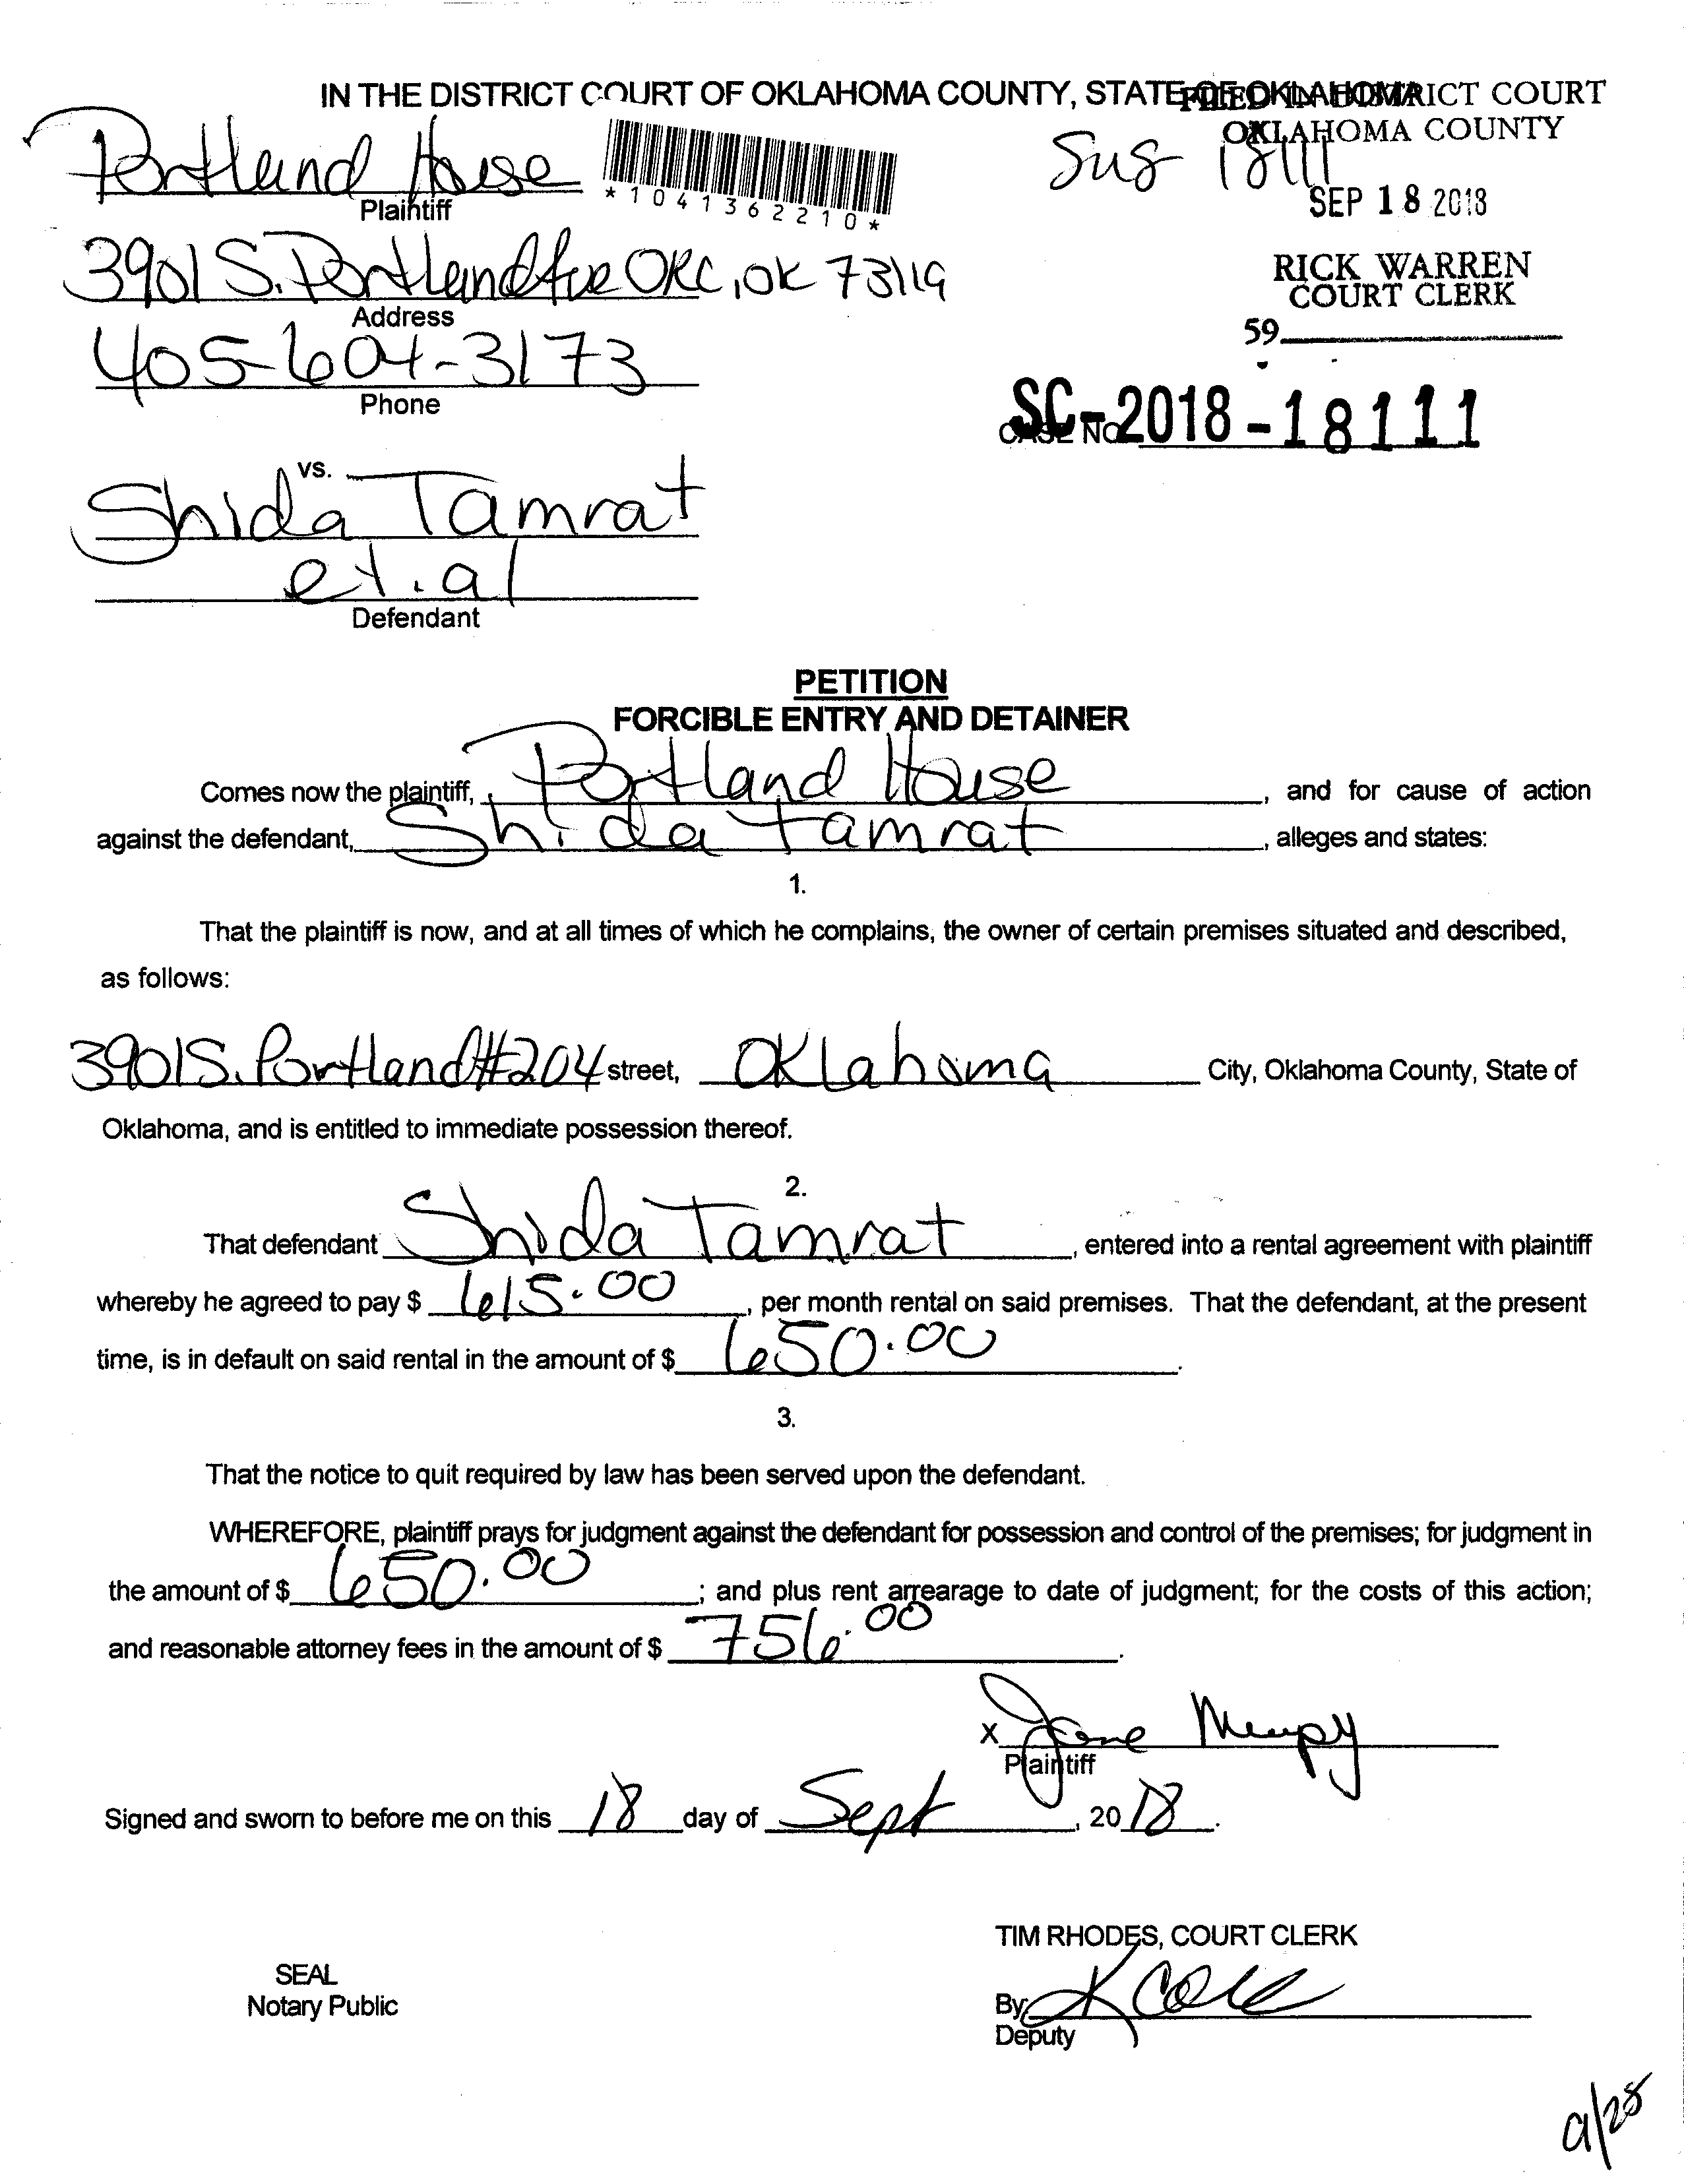 IN THE DISTRICT COURT OF OKLAHOMA COUNTY, STATE OF OKLAHOMA
FILED IN DISTRICT COURT
OKLAHOMA COUNTY
Portland House
Plaintiff
*1041362210*
18111
SEP 18 2018
3901 S. Portland Ave OKC, OK 73119
Address
RICK WARREN
COURT CLERK
59
405-604-3173
Phone
CASE NO. SC-2018-18111
vs.
Shida Tamrat
et.al
Defendant
PETITION
FORCIBLE ENTRY AND DETAINER
Comes now the plaintiff, Portland House, and for cause of action
against the defendant, Shida Tamrat, alleges and states:
1.
That the plaintiff is now, and at all times of which he complains, the owner of certain premises situated and described,
as follows:
3901 S. Portland #204 street, Oklahoma City, Oklahoma County, State of
Oklahoma, and is entitled to immediate possession thereof.
2.
That defendant Shida Tamrat, entered into a rental agreement with plaintiff
whereby he agreed to pay $ 615.00, per month rental on said premises. That the defendant, at the present
time, is in default on said rental in the amount of $ 650.00.
3.
That the notice to quit required by law has been served upon the defendant.
WHEREFORE, plaintiff prays for judgment against the defendant for possession and control of the premises; for judgment in
the amount of $ 650.00; and plus rent arrearage to date of judgment; for the costs of this action;
and reasonable attorney fees in the amount of $ 756.00.
x Jane
Plaintiff
Signed and sworn to before me on this 18 day of Sept, 2018.
TIM RHODES, COURT CLERK
SEAL
Notary Public
By K Cole
Deputy
9/28